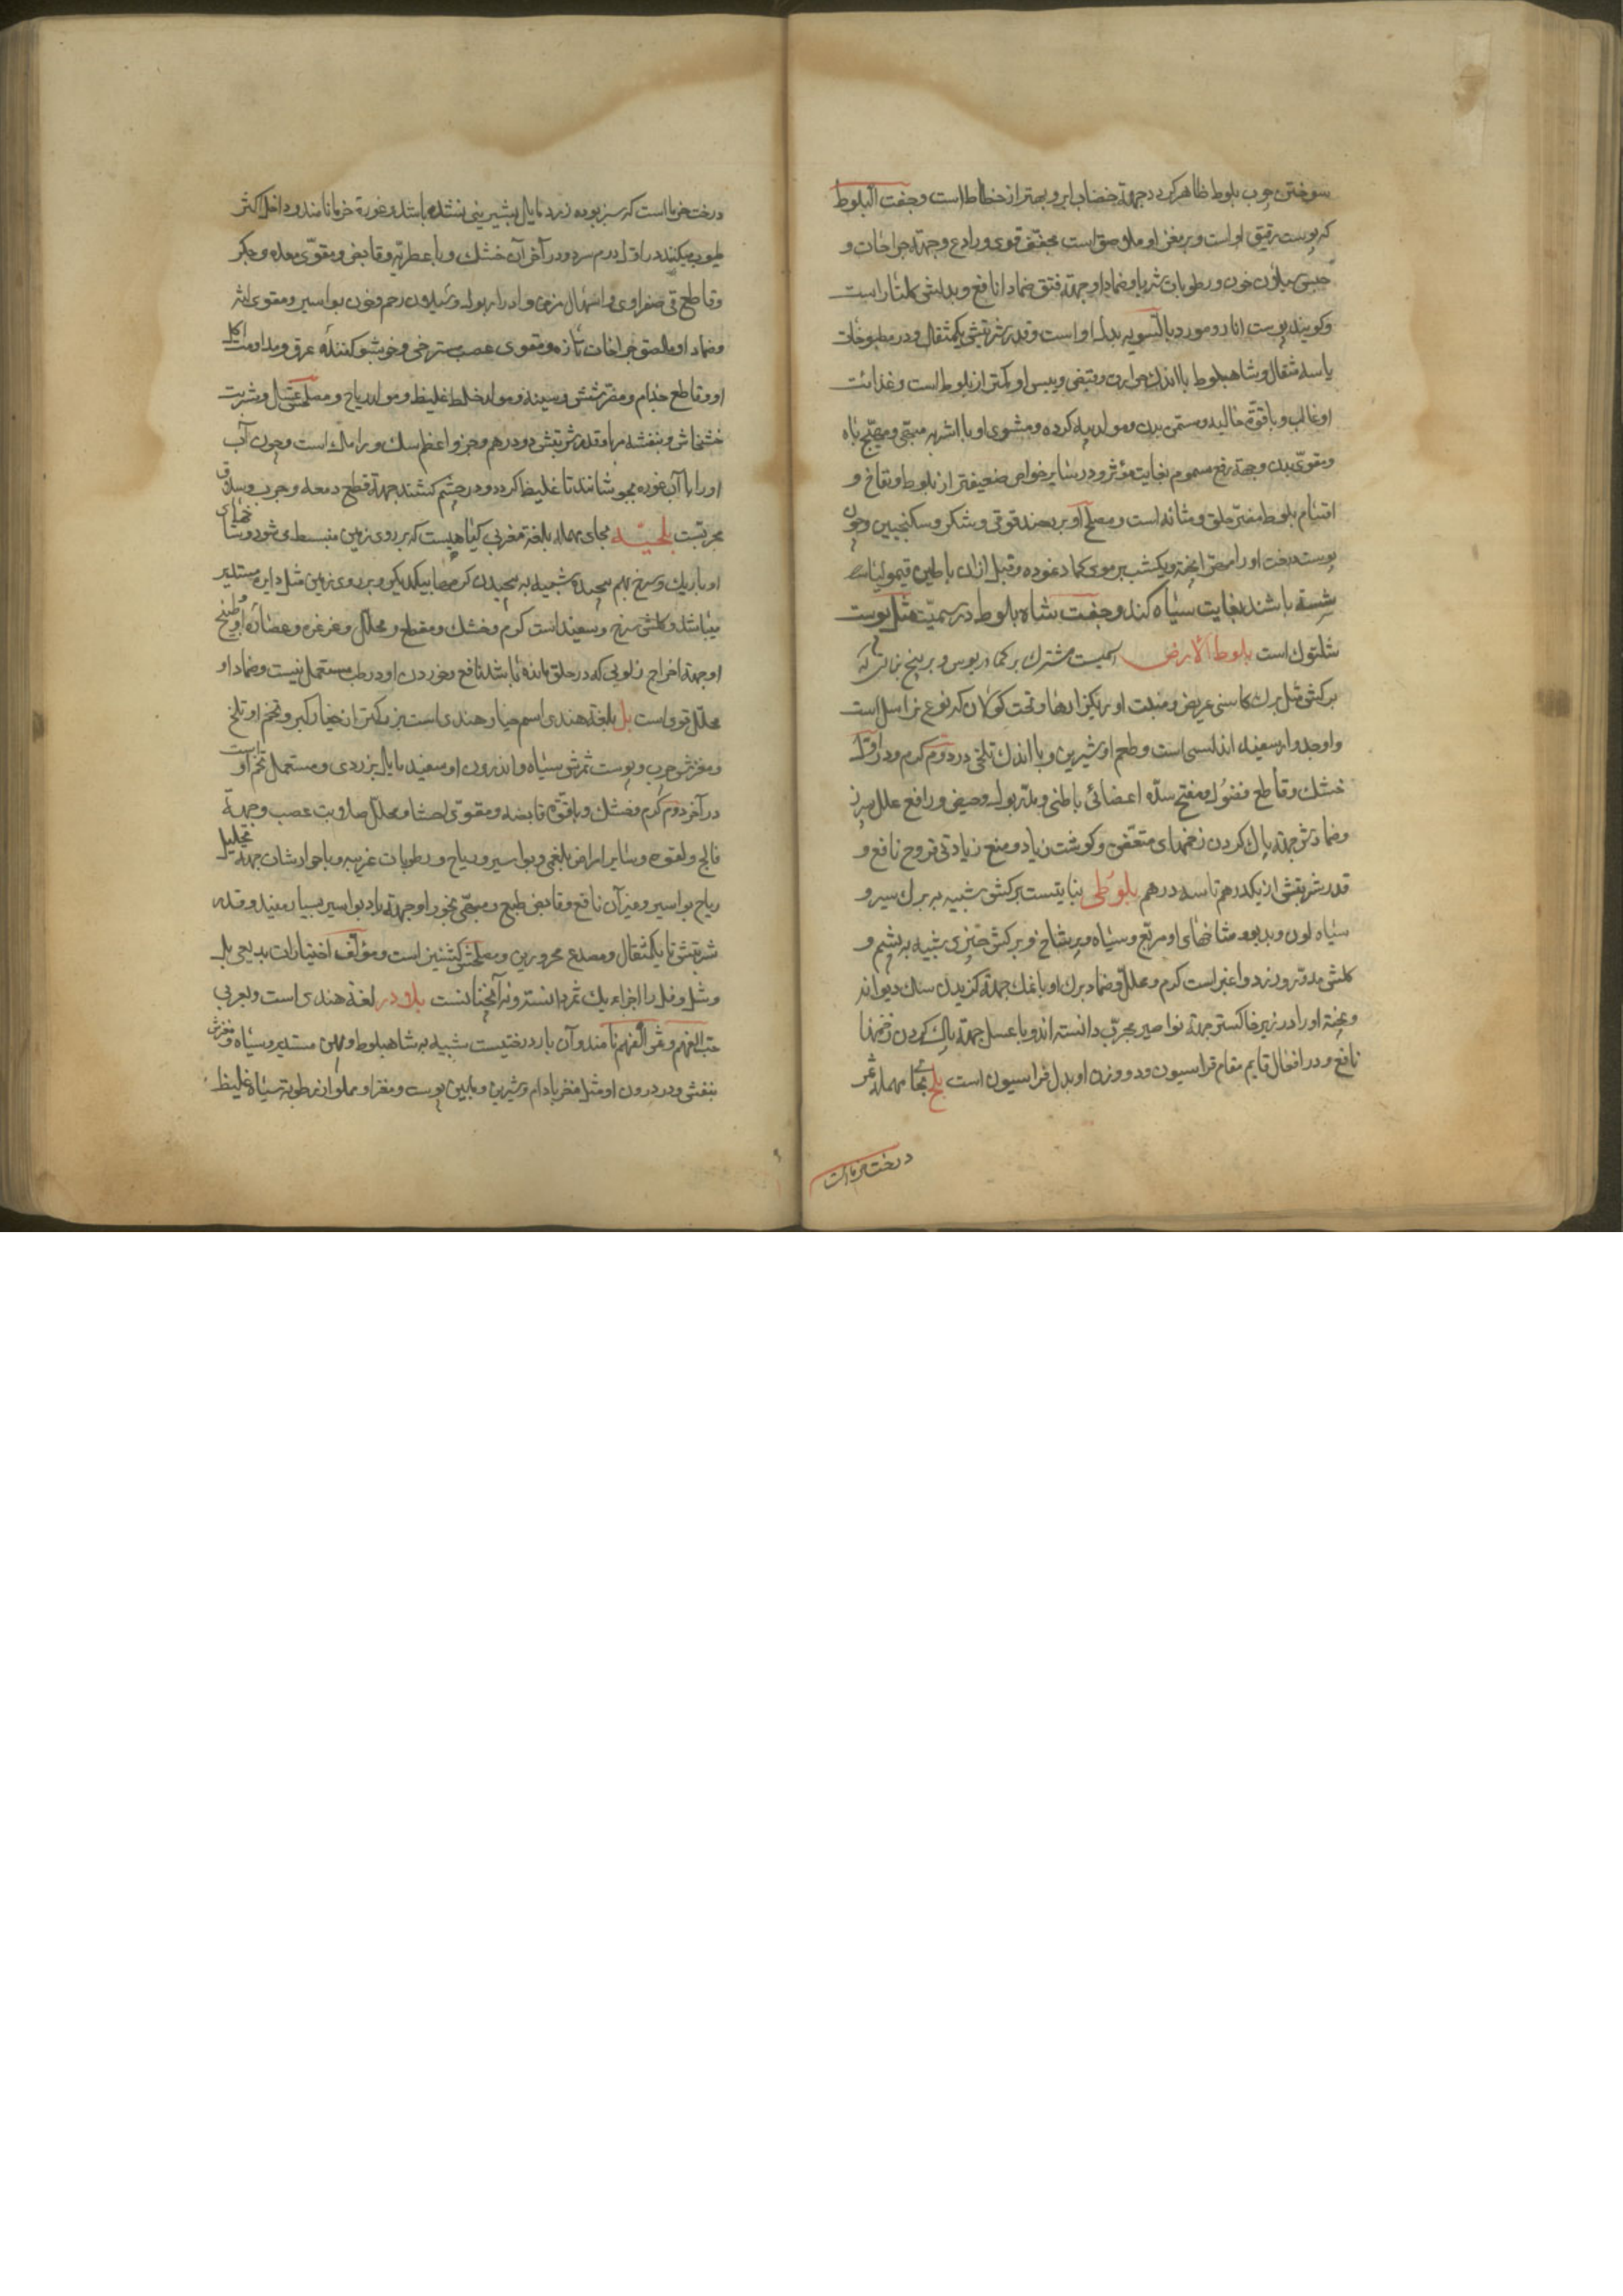 سوختن چوب بلوط ظاهر کردد جهة خضاب ابرو بهتر از خطاط است وجفت البلوط
که پوست رقیق او است وبر مغز او ملاصق است مجفف قوی ورادع وجهة جراحات و
حبس سیلان خون ورطوبات شربا وضمادا وجهة فتق ضمادا نافع وبدلش کلنار است
وکویند پوست انار ومورد بالسویه بدل او است وقدر شربتش یکمثقال ودر مطبوخات
یا سه مثقال وشاهبلوط با اندک حرارت وقبض ویبس او کمتر از بلوط است وغذائیت
او غالب وبا قوة جالیه ومسمن بدن ومولد پیه کرده ومشوی او با اشربه مبهی ومهیج باه
ومقوی بدن وجهة رفع سموم بغایت مؤثر ودر سایر خواص ضعیفتر از بلوط ونفاخ و
اقسام بلوط مضر حلق ومثانه است ومصلح او بریند قوقی وشکر وسکنجبین وچون
پوست درخت او را مهرا پخته ویکشب بر موی ضماد نموده وقبل از ان با طین قیمولیا
شسته باشند بغایت سیاه کند وجفت شاه بلوط در سمیت مثل پوست
شلتوک است بلوط الارض اسمیست مشترک بر کمادریوس وبر بیخ نباتی که
برکش مثل برک کاسنی عریض ومنبت او ریکزارها وتحت کوکلان که نوعی از اسل است
واو جدوار سفید اندلسی است وطعم او شیرین وبا اندک تلخی در دوم کرم ودر اول
خشک وقاطع فضول ومفتح سده اعضائی باطنی ومدر بول وحیض ورافع علل سپرز
وضمادش جهة پاک کردن زخمهای متعفن وکوشت زیاد ومنع زیادتی قروح نافع و
قدر شربتش از یکدرهم تا سه درهم بلوطی نباتیست برکش شبیه به برک سیر و
سیاه لون وبدبو وشاخهای او مربع وسیاه وپر شاخ وبر برکش چیزی شبیه به پشم و
کلش مدور وزرد واغبر است کرم ومحلل وضماد برک او با نمک جهة کزیدن سک دیوانه
وپخته او را در زیر خاکستر جهة نواصیر مجرب دانسته اند وبا عسل جهة پاک کردن زخمها
نافع ودر افعال قایم مقام فراسیون ودو وزن او بدل فراسیون است بلح بحای مهمله ثمر
درخت خرما است
درخت خرما است که سبز بوده زرد مایل بشیرینی نشده باشد وغورۀ خرما نامند وداخل اکثر
طیوب میکنند در اول دوم سرد ودر آخر آن خشک وبا عطریه وقابض ومقوی معده وجکر
وقاطع قی صفراوی واسهال مزمن وادرار بول وسیلان رحم وخون بواسیر ومقوی لثه
وضماد او ملصق جراحات تازه ومقوی عصب مسترخی وخوشبو کنندۀ عرق ومداومت اکل
او وقاطع جذام ومضر شش وسینه ومولد خلط غلیظ ومولد ریاح ومصلحش عسل وشربت
خشخاش وبنفشه مربا وقدر شربتش دو درهم وجزو اعظم سک ورامک است وچون آب
او را با آب غوره بجوشانند تا غلیظ کردد ودر چشم کشند جهة قطع دمعه وجرب وسلاق
مجربست بلحیه بحای مهمله بلغة مغربی کیاهیست که بر روی زمین منبسط می شود وشاخهای
او باریک وسرخ بهم پیچیده شبیه به پیچیدن کرمها بیکدیکر وبر روی زمین مثل دایره مستدیر
میباشد وکلش سرخ وسفید است کرم وخشک ومقطع ومحلل وغرغره وعصاره او وطبیخ
او جهة اخراج زلویی که در حلق مانده باشد نافع وخوردن او در طب مستعمل نیست وضماد او
محلل قوی است بل بلغة هندی اسم خیار هندی است بزرکتر از خیار کبر وتخم او تلخ
ومغزش چرب وپوست ثمرش سیاه واندرون او سفید مایل بزردی ومستعمل تخم او است
در آخر دوم کرم وخشک وبا قوة قابضه ومقوی احشا ومحلل صلابت عصب وجهة
فالج ولقوه وسایر امراض بلغمی وبواسیر وریاح ورطوبات غریبه وبا جوارشات جهة تحلیل
ریاح بواسیر وغیر آن نافع وقابض طبع ومبهی بخور او جهة باد بواسیر بسیار مفید وقدر
شربتش تا یکمثقال ومصدع محرورین ومصلحش کشنیز است ومؤلف اختیارات بدیعی بل
وشل وفل را اجزاء یک ثمر دانسته ونه آنچنانست بلادر لغة هندی است وبعربی
حب الفهم وثمر الفهم نامند وآن بار درختیست شبیه به شاهبلوط وپهن مستدیر وسیاه ومغزش
بنفش ودر درون او مثل مغز بادام وشیرین ومابین پوست ومغز او مملو از رطوبة سیاه غلیظ